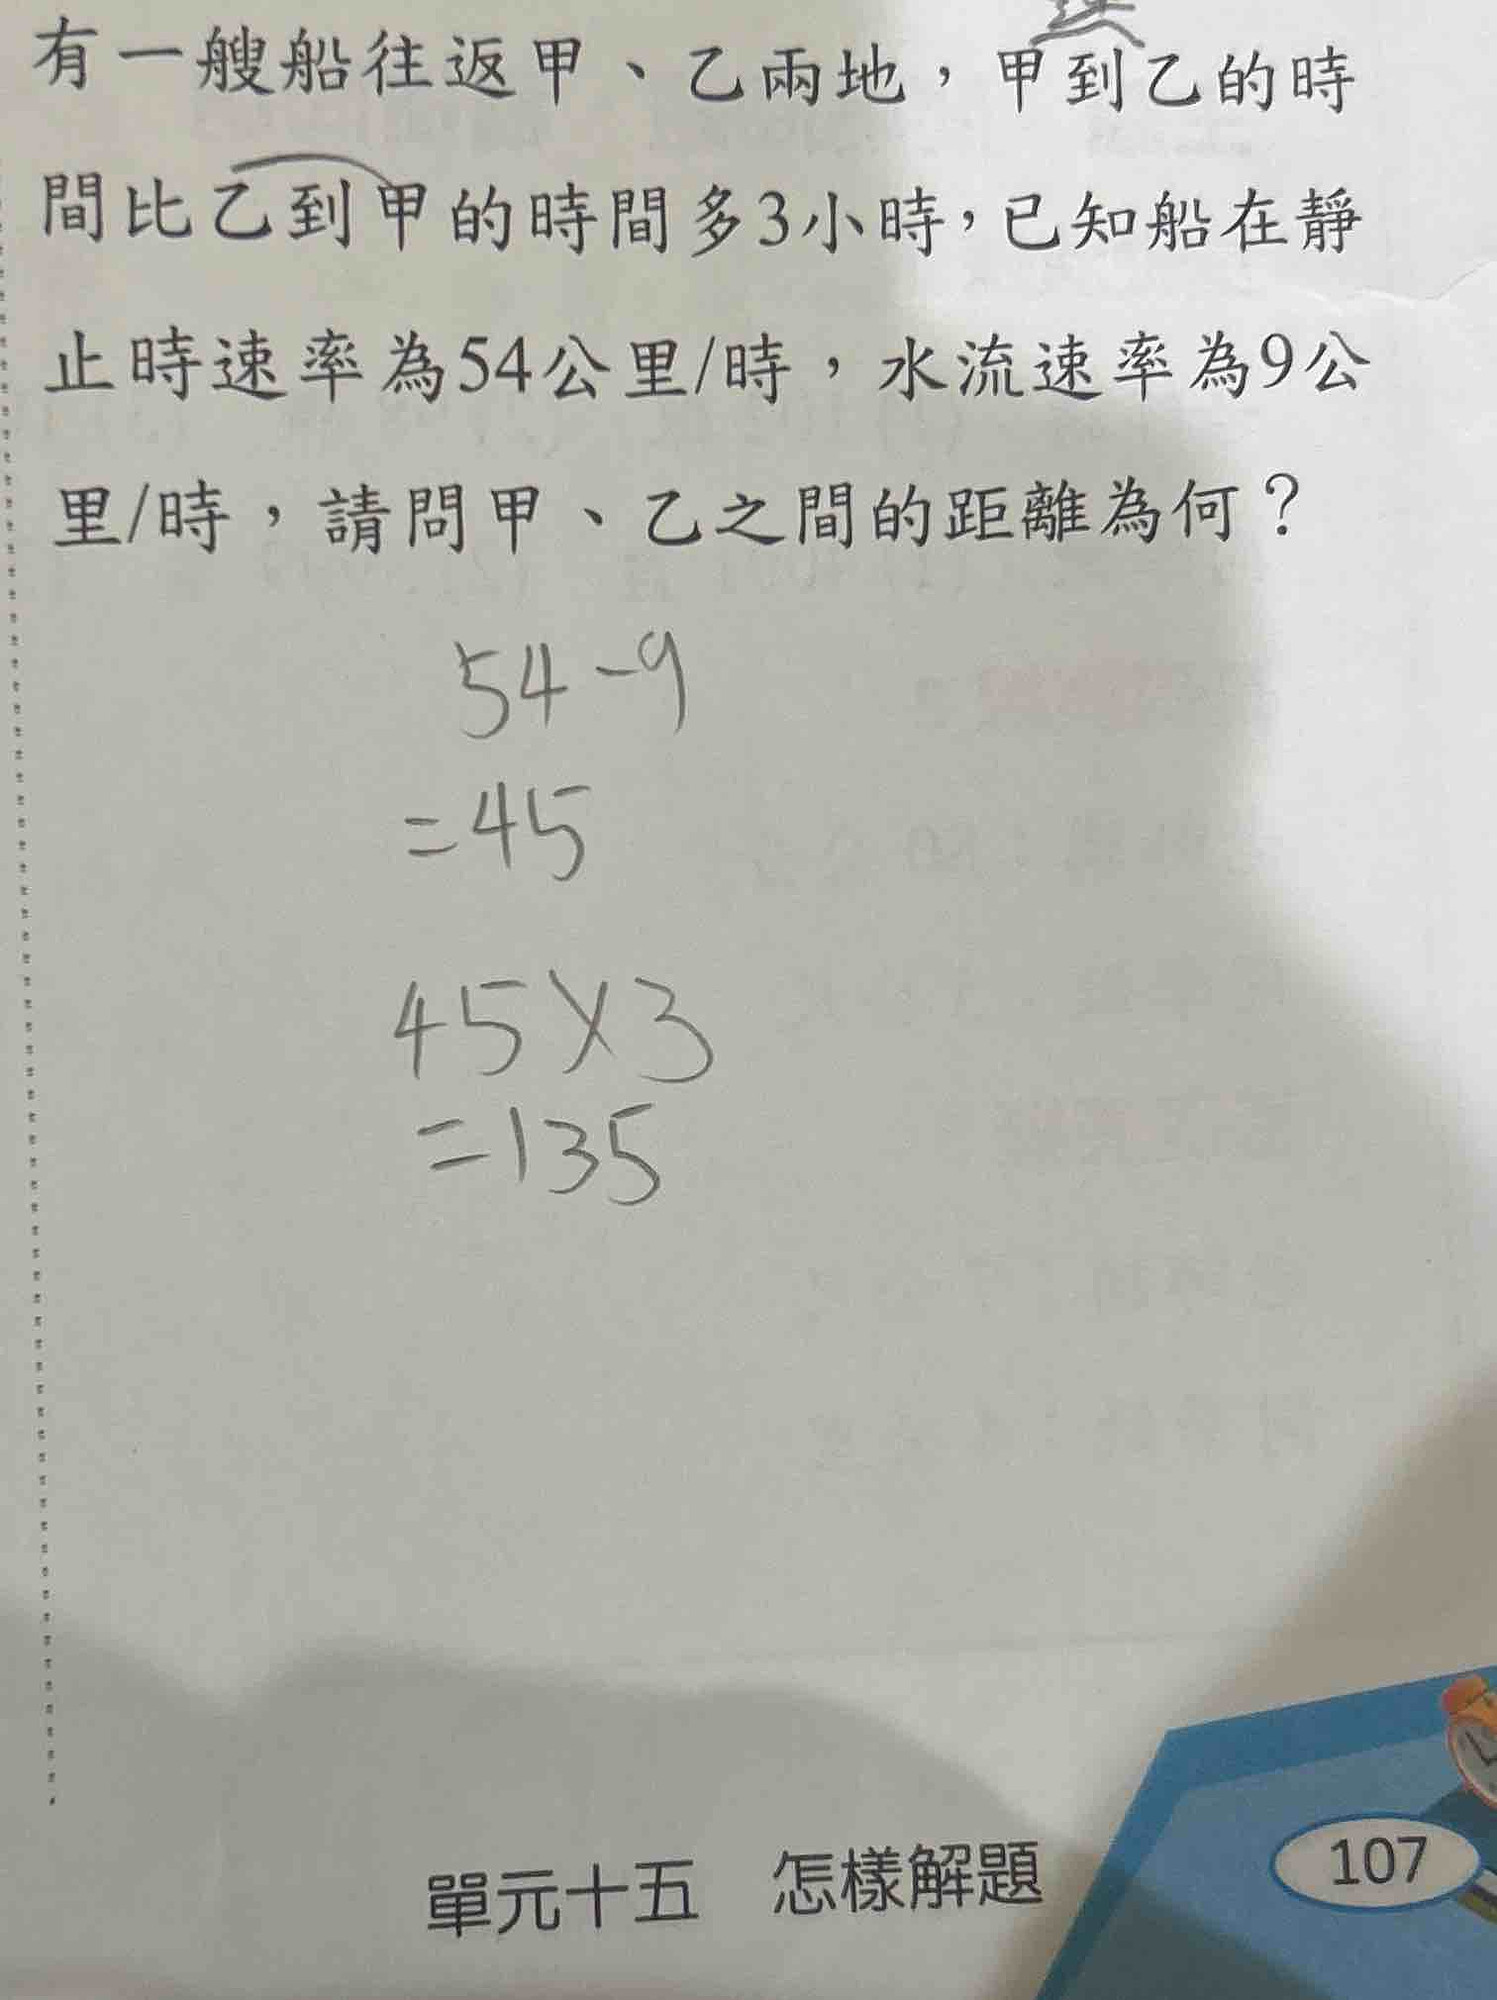 有一艘船往返甲、乙兩地，甲到乙的時
間比乙到甲的時間多3小時，已知船在靜
止時速率為54公里/時，水流速率為9公
里/時，請問甲、乙之間的距離為何？
54-9
=45
45×3
=135
單元十五 怎樣解題
107